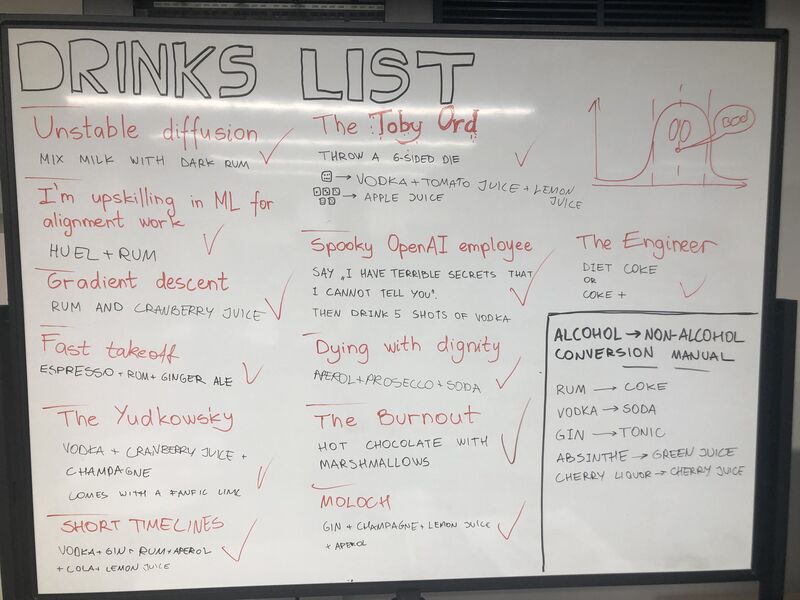 DRINKS LIST
Unstable diffusion
MIX MILK WITH DARK RUM
I'm upskilling in ML for
alignment work
HUEL + RUM
Gradient descent
RUM AND CRANBERRY JUICE
Fast takeoff
ESPRESSO + RUM + GINGER ALE
The Yudkowsky
VODKA + CRANBERRY JUICE +
CHAMPAGNE
COMES WITH A FANFIC LINK
SHORT TIMELINES
VODKA + GIN + RUM + APEROL
+ COLA + LEMON JUICE
The Toby Ord
THROW A 6-SIDED DIE
→ VODKA + TOMATO JUICE + LEMON
JUICE
→ APPLE JUICE
Spooky OpenAI employee
SAY „I HAVE TERRIBLE SECRETS THAT
I CANNOT TELL YOU".
THEN DRINK 5 SHOTS OF VODKA
Dying with dignity
APEROL + PROSECCO + SODA
The Burnout
HOT CHOCOLATE WITH
MARSHMALLOWS
MOLOCH
GIN + CHAMPAGNE + LEMON JUICE
+ APEROL
BOO
The Engineer
DIET COKE
OR
COKE +
ALCOHOL → NON-ALCOHOL
CONVERSION MANUAL
RUM → COKE
VODKA → SODA
GIN → TONIC
ABSINTHE → GREEN JUICE
CHERRY LIQUOR → CHERRY JUICE